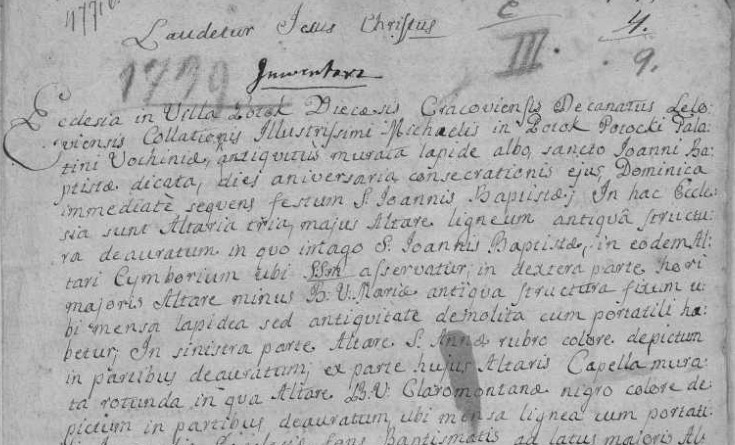 4771
Laudetur Jesus Christus
C 4.
1739 III. 9.
Inwentarz
Ecclesia in Villa Potok Diæcesis Cracoviensis Decanatus Lelo-
viensis Collationis Illustrissimi Michaelis in Potok Potocki Pala-
tini Vochiniæ, antiquitùs murata lapide albo, sancto Ioanni Ba-
ptistæ dicata, dies aniversaria consecrationis ejus, Dominica
immediatè sequens festum S. Ioannis Baptistæ; In hac Eccle-
sia sunt Altaria tria, majus Altare ligneum antiquâ structu-
ra deauratum in quo imago S. Ioannis Baptistæ, in eodem Al-
tari Cymborium ubi SSm asservatur, in dextera parte
majoris Altare minus B. V. Mariæ antiqua structura fixum u-
bi mensa lapidea sed antiquitate demolita cum portatili ha-
betur; In sinistra parte Altare S. Annæ rubro colore depictum
in partibus deauratum; ex parte hujus Altaris Capella mura-
ta rotunda in qua Altare B. V. Claromontanæ nigro colore de-
pictum in partibus deauratum, ubi mensa lignea cum portati-
fons Baptismatis ad latus majoris Al-